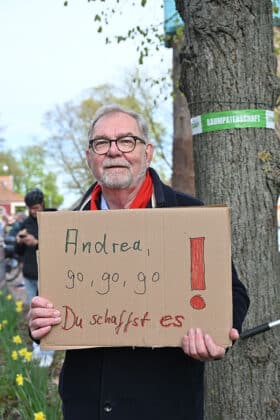 BAUMPATENSCHAFT
Andrea,
go, go, go
Du schaffst es !